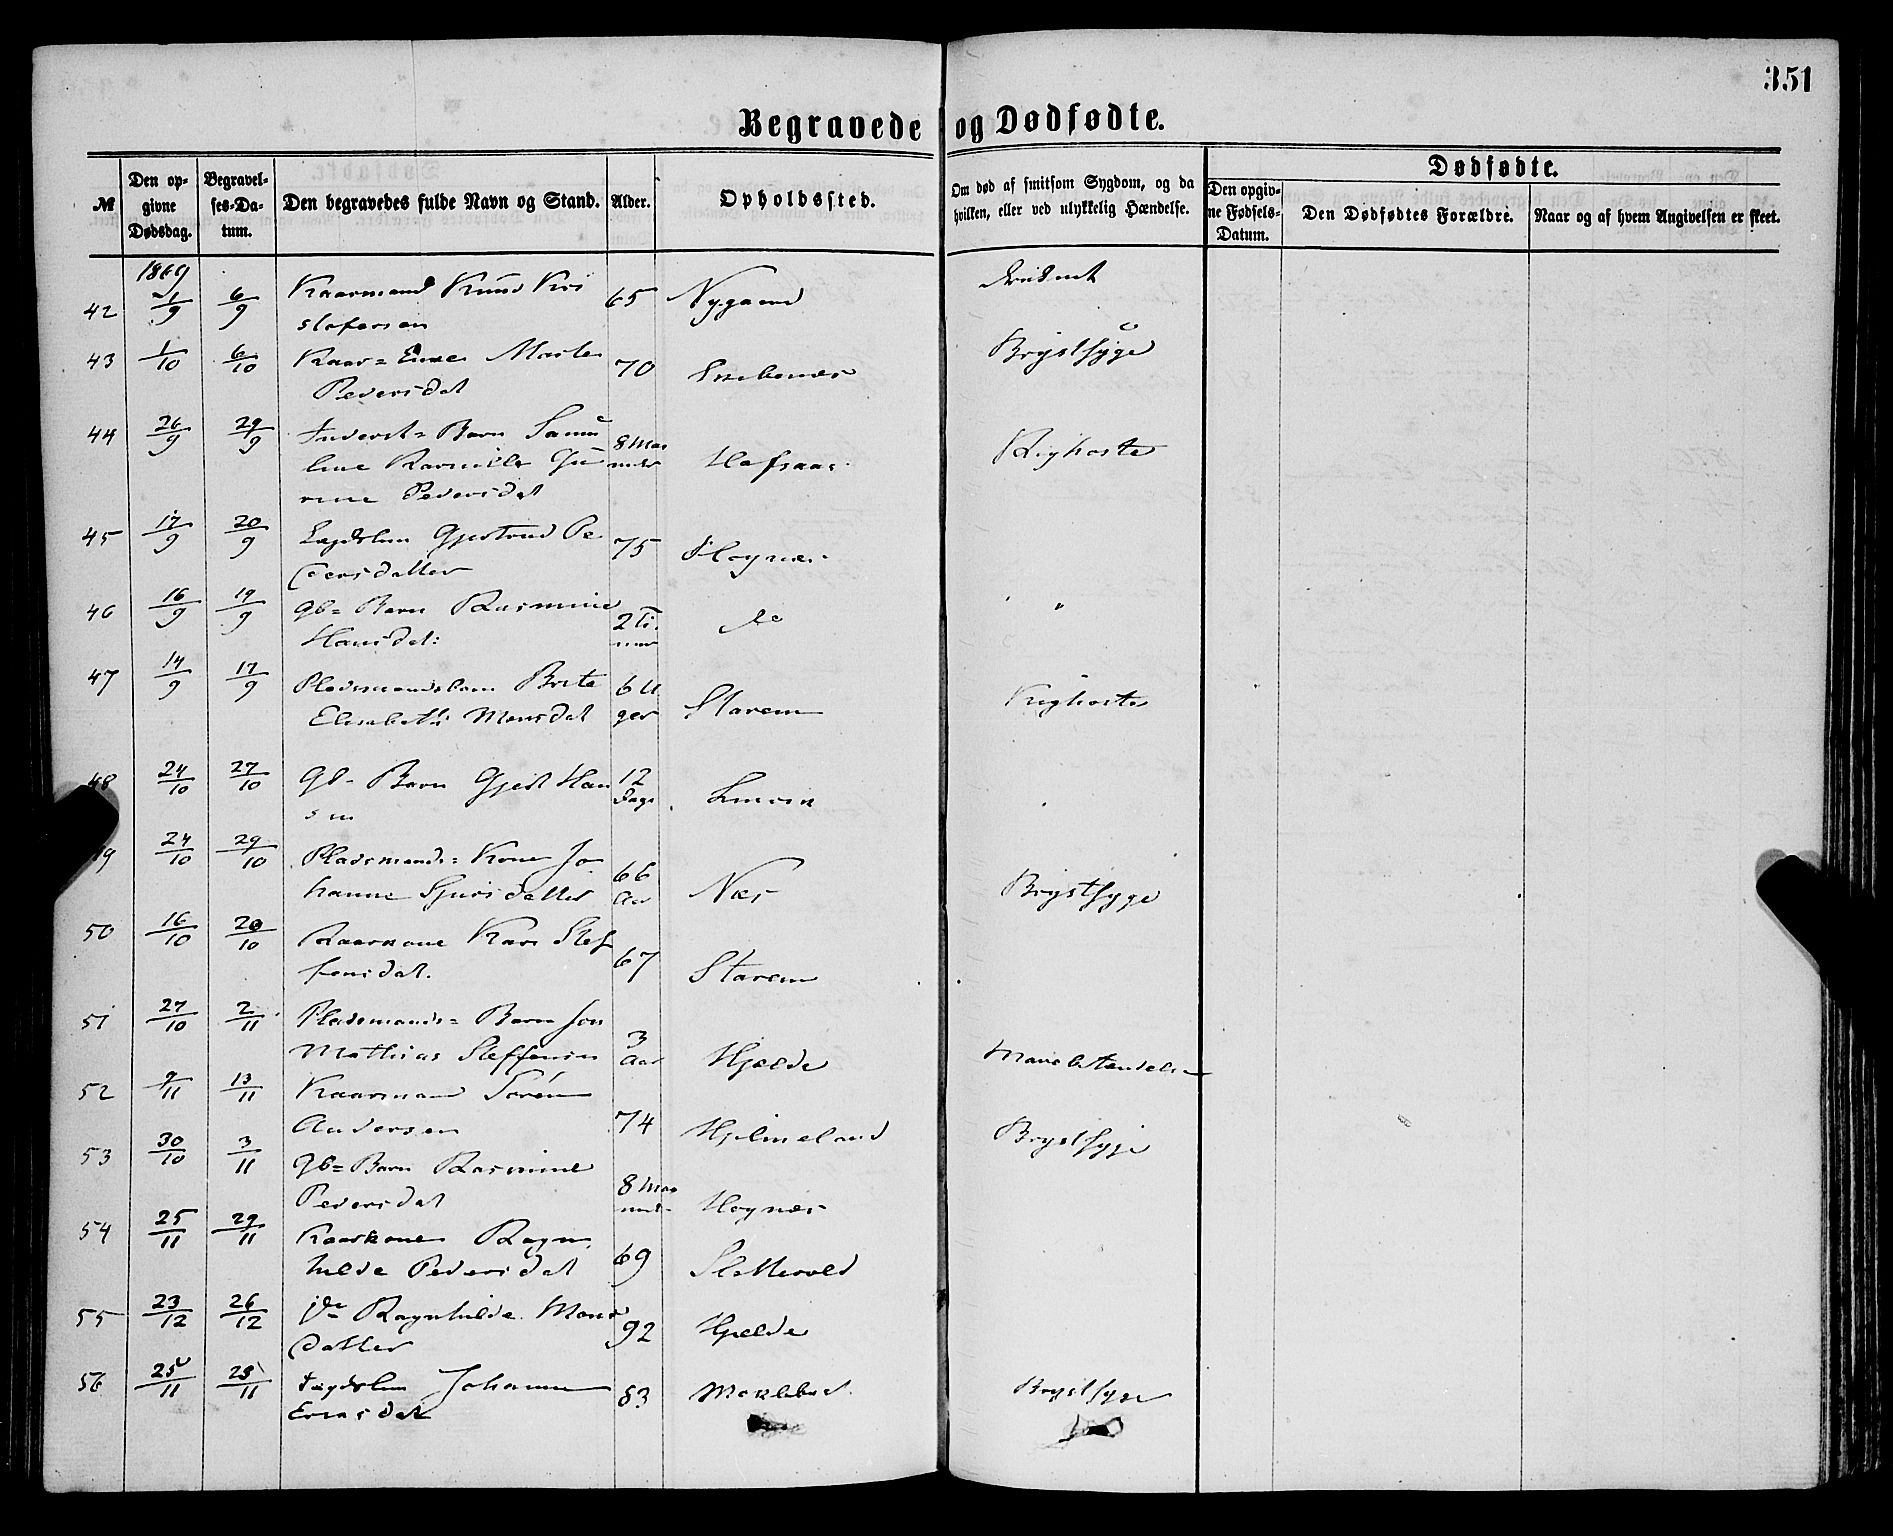 351
Begravede og Dødfødte.
№
Den opgivne Dødsdag.
Begravelses-Datum.
Den begravedes fulde Navn og Stand.
Alder.
Opholdssted.
Om død af smitsom Sygdom, og da hvilken, eller ved ulykkelig Hændelse.
Dødfødte.
Den opgivne Fødsels-Datum.
Den Dødfødtes Forældre.
Naar og af hvem Angivelsen er skeet.
1869
42 1/9 6/9 Kaarmand Knud Kri 65 Nygaard
stofersen
43 1/10 6/10 Kaar= Marte 70 Brystsyge
Pedersdat
44 26/9 29/9 Inderst= Barn 8 Maa Kighoste
neder
Pedersdat
45 17/9 20/9 Lægdslem Gjertrud Pe 75 Høgnæs
dersdatter
46 16/9 19/9 gb= Barn Rasmine 2 Ti do "
Hansdat: mer
47 14/9 17/9 Pladsmandsbarn Brite 6 U Starem Kighoste
Elisabeth Monsdat ger
48 24/10 27/10 gb= Barn Gjert Han 12
sen Dage
49 24/10 29/10 Pladsmands= Kone Jo 66 Næs Brystsyge
hanne Sjursdatter Aar
50 16/10 20/10 Kaarkone Kari Stef 67 Starem
fensdat.
51 27/10 2/11 Pladsmands= Barn Jon 3 Hjelde
Mathias Steffensen Aar
52 9/11 13/11 Kaarmand Søren 74 Hjelmeland Brystsyge
Andersen
53 30/10 3/11 gb= Barn Rasmine 8 Maa Høgnæs
Pedersdat neder
54 25/11 29/11 Kaarkone Ragn 69
hilde Pedersdat
55 23/12 26/12 do Ragnhilde Mons 92 Hjelde
datter
56 25/11 Lægdslem Johanne 83 Brystsyge